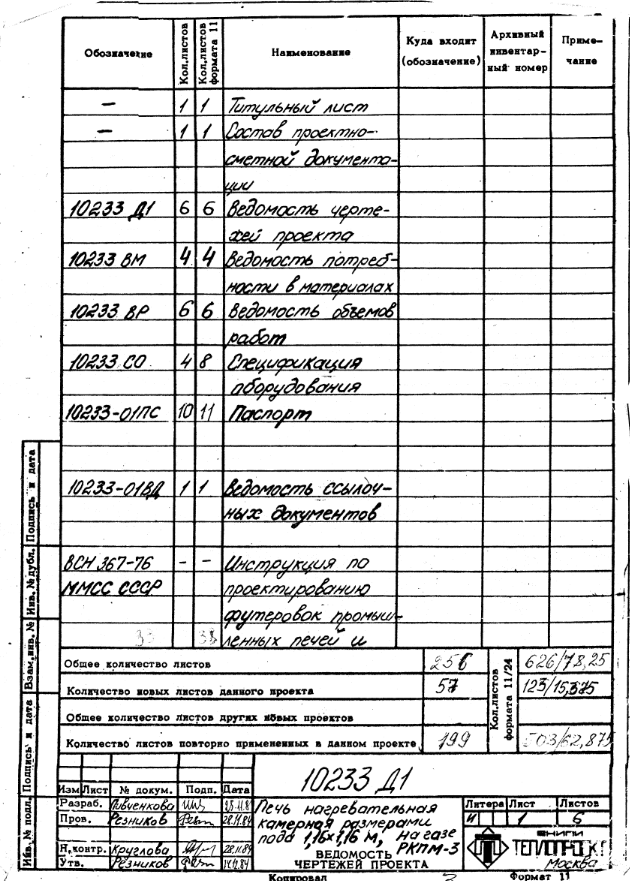 Обозначение Кол.листов Кол.листов формата 11 Наименование Куда входит (обозначение) Архивный инвентарный номер Примечание
— 1 1 Титульный лист
— 1 1 Состав проектно-
сметной документа-
ции
10233 Д1 6 6 Ведомость черте-
жей проекта
10233 ВМ 4 4 Ведомость потреб-
ности в материалах
10233 ВР 6 6 Ведомость объемов
работ
10233 СО 4 8 Спецификация
оборудования
10233-01ПС 10 11 Паспорт
10233-01ВД 1 1 Ведомость ссылоч-
ных документов
ВСН 367-76 - - Инструкция по
ММСС СССР проектированию
футеровок промыш-
33 38 ленных печей и
Общее количество листов 256 Кол.листов формата 11/24 626/78,25
Количество новых листов данного проекта 57 123/15,375
Общее количество листов других новых проектов
Количество листов повторно примененных в данном проекте 199 503/62,875
Инв. № подл. Подпись и дата Взам. инв. № Инв. № дубл. Подпись и дата
10233 Д1
Изм Лист № докум. Подп. Дата
Разраб.
Пров. Резников 28.11.84
Н.контр. Круглова 28.11.84
Утв. Резников
Печь нагревательная
камерная размерами
пода 1,16×1,16 м, на газе
РКПМ-3
ВЕДОМОСТЬ
ЧЕРТЕЖЕЙ ПРОЕКТА
Литера Лист Листов
И 1 6
ВНИПИ
ТЕПЛОПРОЕКТ
Москва
Копировал Формат 11